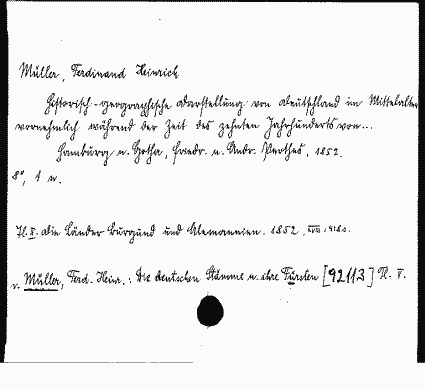 Müller, Ferdinand Heinrich
Historisch-geographische Darstellung von Deutschland im Mittelalter
vornehmlich während der Zeit des zehnten Jahrhunderts von...
Hamburg u. Gotha, Friedr. u. Andr. Perthes, 1852.
8°, 1 u.
II. Die Länder Burgund und Alemannien. 1852. XVIII, 418 s.
v. Müller, Ferd. Heinr.: Die deutschen Stämme u. ihre Fürsten [92113] Th. V.